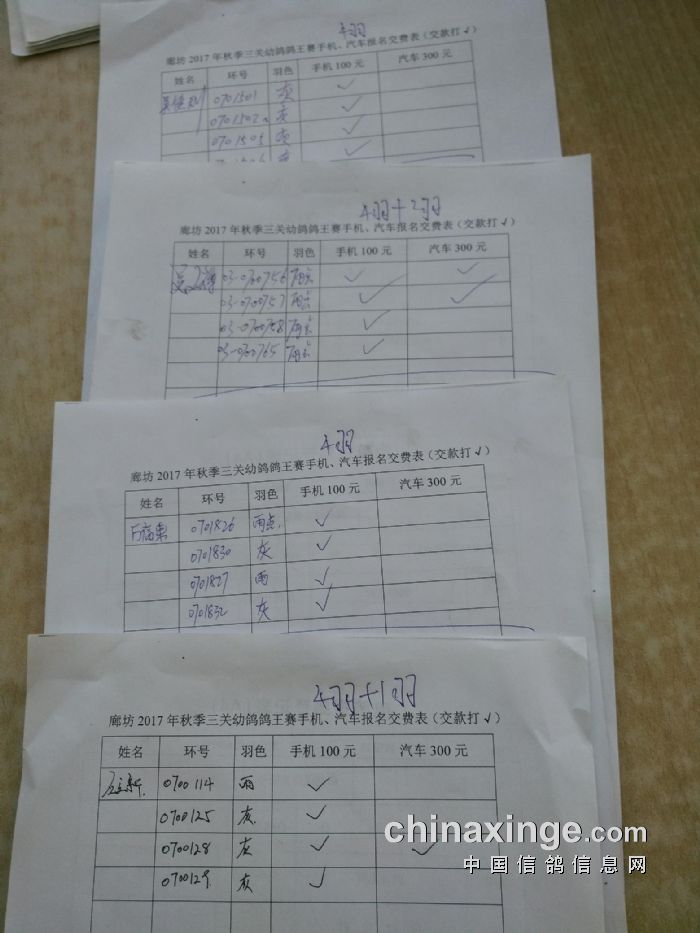 4羽
廊坊2017年秋季三关幼鸽鸽王赛手机、汽车报名交费表（交款打√）
姓名 环号 羽色 手机100元 汽车300元
0701501 灰 ✓
0701502 灰 ✓
0701505 灰 ✓
灰 ✓
4羽+2羽
廊坊2017年秋季三关幼鸽鸽王赛手机、汽车报名交费表（交款打√）
姓名 环号 羽色 手机100元 汽车300元
03-0700756 雨点 ✓ ✓
03-0700757 雨点 ✓ ✓
03-0700758 雨点 ✓
03-0700765 雨点 ✓
4羽
廊坊2017年秋季三关幼鸽鸽王赛手机、汽车报名交费表（交款打√）
姓名 环号 羽色 手机100元 汽车300元
0701826 雨点 ✓
0701830 灰 ✓
0701827 雨 ✓
0701832 灰 ✓
4羽+1羽
廊坊2017年秋季三关幼鸽鸽王赛手机、汽车报名交费表（交款打√）
姓名 环号 羽色 手机100元 汽车300元
0700114 雨 ✓
0700125 灰 ✓
0700128 灰 ✓ ✓
0700129 灰 ✓
chinaxinge.com
中国信鸽信息网